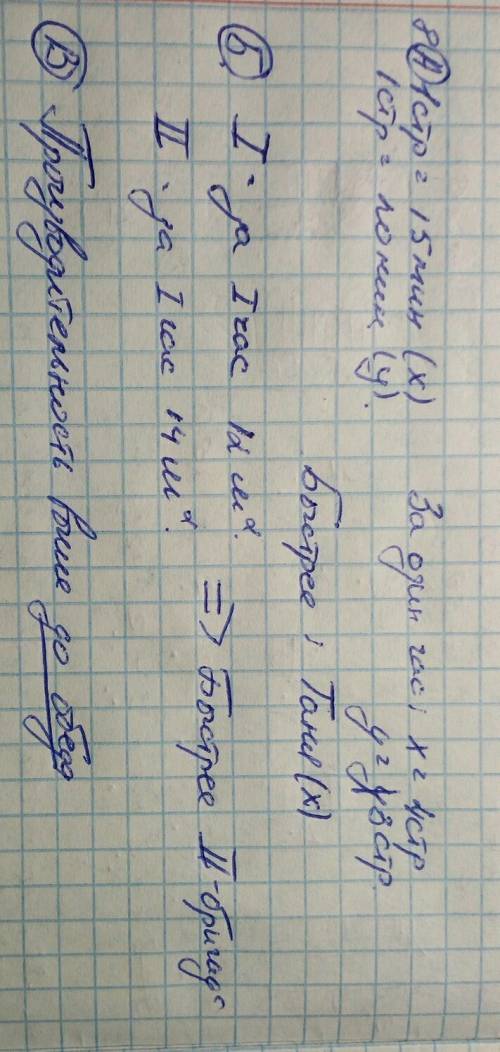 8 А 1 стр = 15 мин (x) За один час; x = 4 стр
1 стр = 20 мин (y). y = 3 стр.
Быстрее; Таня (x)
Б I - за I час 12 м². 
II - за I час 14 м². => Быстрее II-бригада
В Производительность выше до обеда